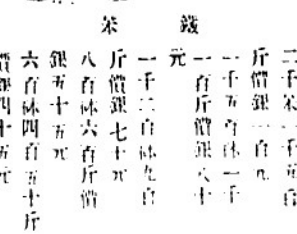 二千砵一千五百
斤價銀一百元
一千五百砵一千
一百斤價銀八十
元
一千二百砵九百
斤價銀七十元
八百砵六百斤價
銀五十五元
六百砵四百五十斤
價銀四十五元